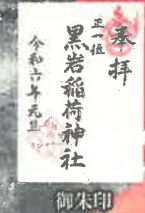 奉拝
正一位
黒岩稲荷神社
令和六年元旦
御朱印